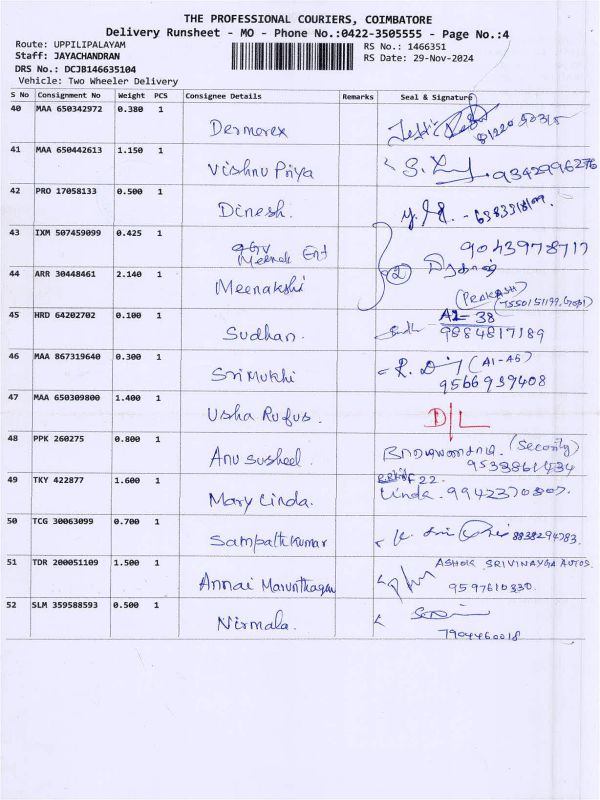 THE PROFESSIONAL COURIERS, COIMBATORE
Delivery Runsheet - MO - Phone No.:0422-3505555 - Page No.:4
Route: UPPILIPALAYAM
RS No.: 1466351
Staff: JAYACHANDRAN
RS Date: 29-Nov-2024
DRS No.: DCJB146635104
Vehicle: Two Wheeler Delivery
S No Consignment No Weight PCS Consignee Details Remarks Seal & Signature
40 MAA 650342972 0.380 1
Dermorex
41 MAA 650442613 1.150 1
Vishnu Priya 9342996276
42 PRO 17058133 0.500 1
Dinesh.
43 IXM 507459099 0.425 1
Meenak Ent 9043978717
44 ARR 30448461 2.140 1 2
Meenakshi (PRAKASH)
45 HRD 64202702 0.100 1 A1- 38
Sudhan. 9884817189
46 MAA 867319640 0.300 1 (A1-A6)
Sri Mukhi 9566939408
47 MAA 650309800 1.400 1
Usha Rufus. D/L
48 PPK 260275 0.800 1 (Security)
Anu susheel.
49 TKY 422877 1.600 1 F22.
Mary Linda. Linda.
50 TCG 30063099 0.700 1
Sampathkumar 8838294783.
51 TDR 200051109 1.500 1 ASHOK SRIVINAYGA AUTOS.
Annai Marunthagam 9597610830.
52 SLM 359588593 0.500 1
Nirmala. 7904460018